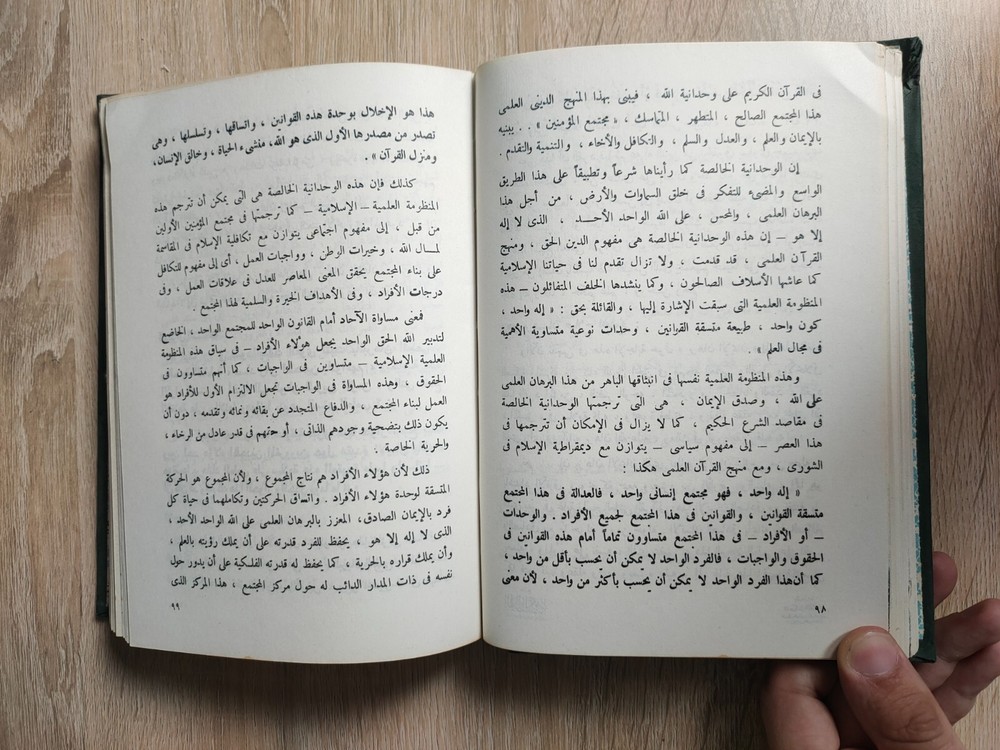 فى القرآن الكريم على وحدانية الله ، فيبنى بهذا المنهج الدينى العلمى
هذا المجتمع الصالح ، المتطهر ، المتماسك ، « مجتمع المؤمنين » . . يبنيه
بالإيمان والعلم ، والعدل والسلم ، والتكافل والأخاء ، والتنمية والتقدم .
إن الوحدانية الخالصة كما رأيناها شرعاً وتطبيقاً على هذا الطريق
الواسع والمضىء للتفكر فى خلق السماوات والأرض ، من أجل هذا
البرهان العلمى ، والمحس ، على الله الواحد الأحــد ، الذى لا إله
إلا هو — إن هذه الوحدانية الخالصة هى مفهوم الدين الحق ، ومنهج
القرآن العلمى ، قد قدمت ، ولا تزال تقدم لنا فى حياتنا الإسلامية
كما عاشها الأسلاف الصالحون ، وكما ينشدها الخلف المتفائلون — هذه
المنظومة العلمية التى سبقت الإشارة إليها ، والقائلة بحق : « إله واحد ،
كون واحد ، طبيعة متسقة القوانين ، وحدات نوعية متساوية الأهمية
فى مجال العلم » .
وهذه المنظومة العلمية نفسها فى انبثاقها الباهر من هذا البرهان العلمى
على الله ، وصدق الإيمان ، هى التى ترجمتها الوحدانية الخالصة
فى مقاصد الشرع الحكيم ، كما لا يزال فى الإمكان أن تترجمها فى
هذا العصر — إلى مفهوم سياسى — يتوازن مع ديمقراطية الإسلام فى
الشورى ، ومع منهج القرآن العلمى هكذا :
« إله واحد ، فهو مجتمع إنسانى واحد ، فالعدالة فى هذا المجتمع
متسقة القوانين ، والقوانين فى هذا المجتمع لجميع الأفراد . والوحدات
— أو الأفراد — فى هذا المجتمع متساوون تماماً أمام هذه القوانين فى
الحقوق والواجبات ، فالفرد الواحد لا يمكن أن يحسب بأقل من واحد ،
كما أن هذا الفرد الواحد لا يمكن أن يحسب بأكثر من واحد ، لأن معنى
٩٨
هذا هو الإخلال بوحدة هذه القوانين ، واتساقها ، وتسلسلها ، وهى
تصدر من مصدرها الأول الذى هو الله، منشىء الحياة ، وخالق الإنسان،
ومنزل القرآن » .
كذلك فإن هذه الوحدانية الخالصة هى التى يمكن أن تترجم هذه
المنظومة العلمية — الإسلامية — كما ترجمتها فى مجتمع المؤمنين الأولين
من قبل ، إلى مفهوم اجتماعى يتوازن مع تكافلية الإسلام فى المقاسمة
لمــال الله ، وخيرات الوطن ، وواجبات العمل ، أى إلى مفهوم للتكافل
على بناء المجتمع يحقق المعنى المعاصر للعدل فى علاقات العمل ، وفى
درجات الأفراد ، وفى الأهداف الخيرة والسلمية لهذا المجتمع .
فمعنى مساواة الآحاد أمام القانون الواحد للمجتمع الواحد ، الخاضع
لتدبير الله الحق الواحد يجعل هؤلاء الأفراد — فى سياق هذه المنظومة
العلمية الإسلامية — متساوين فى الواجبات ، كما أنهم متساوون فى
الحقوق ، وهذه المساواة فى الواجبات تجعل الالتزام الأول للأفراد هو
العمل لبناء المجتمع ، والدفاع المتجدد عن بقائه ونمائه وتقدمه ، دون أن
يكون ذلك بتضحية وجودهم الذاتى ، أو حقهم فى قدر عادل من الرخاء ،
والحرية الخاصة .
ذلك لأن هؤلاء الأفراد هم نتاج المجموع ، ولأن المجموع هو الحركة
المتسقة لوحدة هؤلاء الأفراد . واتساق الحركتين وتكاملهما فى حياة كل
فرد بالإيمان الصادق، المعزز بالبرهان العلمى على الله الواحد الأحد ،
الذى لا إله إلا هو ، يحفظ للفرد قدرته على أن يملك رؤيته بالعلم ،
وأن يملك قراره بالحرية ، كما يحفظ له قدرته الفلكية على أن يدور حول
نفسه فى ذات المدار الدائب له حول مركز المجتمع ، هذا المركز الذى
٩٩